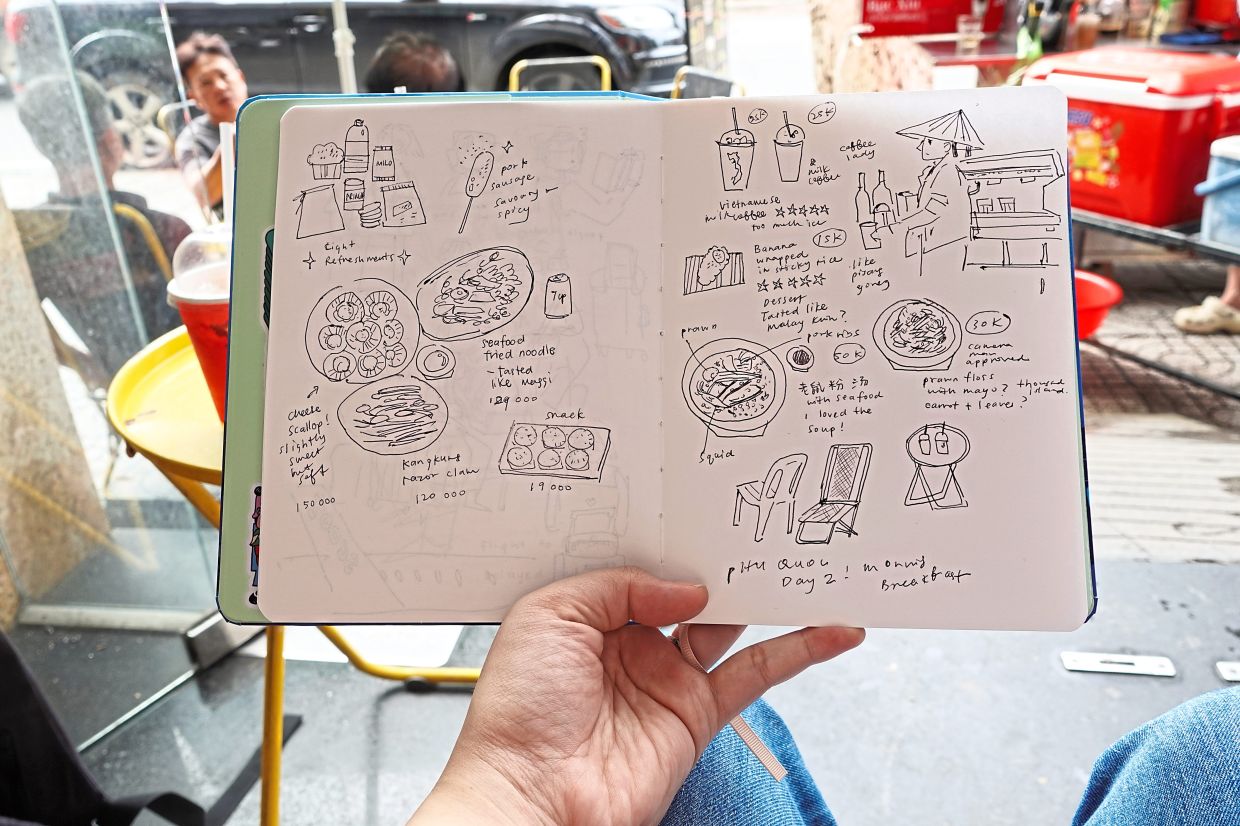 Bạc Xỉu
MILO
Light
Refreshments
pork
sausage
savoury
spicy
7up
seafood
fried noodle
- tasted
like maggi
129 000
cheese
scallop!
slightly
sweet
but
soft
150 000
kangkung
razor clam
120 000
snack
19 000
25K
25K
& milk
coffee
coffee
lady
Vietnamese
milk coffee ☆☆☆☆☆
too much ice
Banana
wrapped
in sticky rice
☆☆☆☆☆
15K
Dessert
Tasted like
malay kuih?
like
pisang
goreng
prawn
pork ribs
50K
老鼠粉 汤
with seafood
i loved the
soup!
squid
30K
camera
man
approved
prawn floss
with mayo? thousand
island.
carrot + leaves?
PHU QUOC
Day 2! Morning
Breakfast